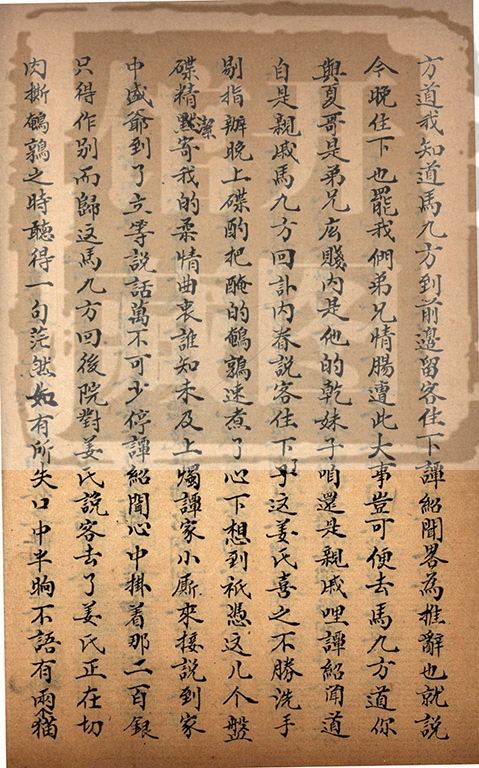 方道我知道馬九方到前邊留客住下譚紹聞畧為推辭也就説
今晚住下也罷我們弟兄情腸遭此大事豈可便去馬九方道你
與夏哥是弟兄広賤内是他的乾妹子咱還是親戚哩譚紹聞道
自是親戚馬九方回訃内眷説客住下了这姜氏喜之不勝洗手
剔指辦晚上碟酌把醃的鵪鶉速煮了心下想到祇憑这几个盤
碟精潔黙寄我的柔情曲衷誰知未及上燭譚家小厮來接説到家
中盛爺到了立等説話萬不可少停譚紹聞心中掛着那二百銀
只得作別而歸这馬九方回後院對姜氏説客去了姜氏正在切
肉撕鵪鶉之時聽得一句茫然如有所失口中半晌不語有兩个猫